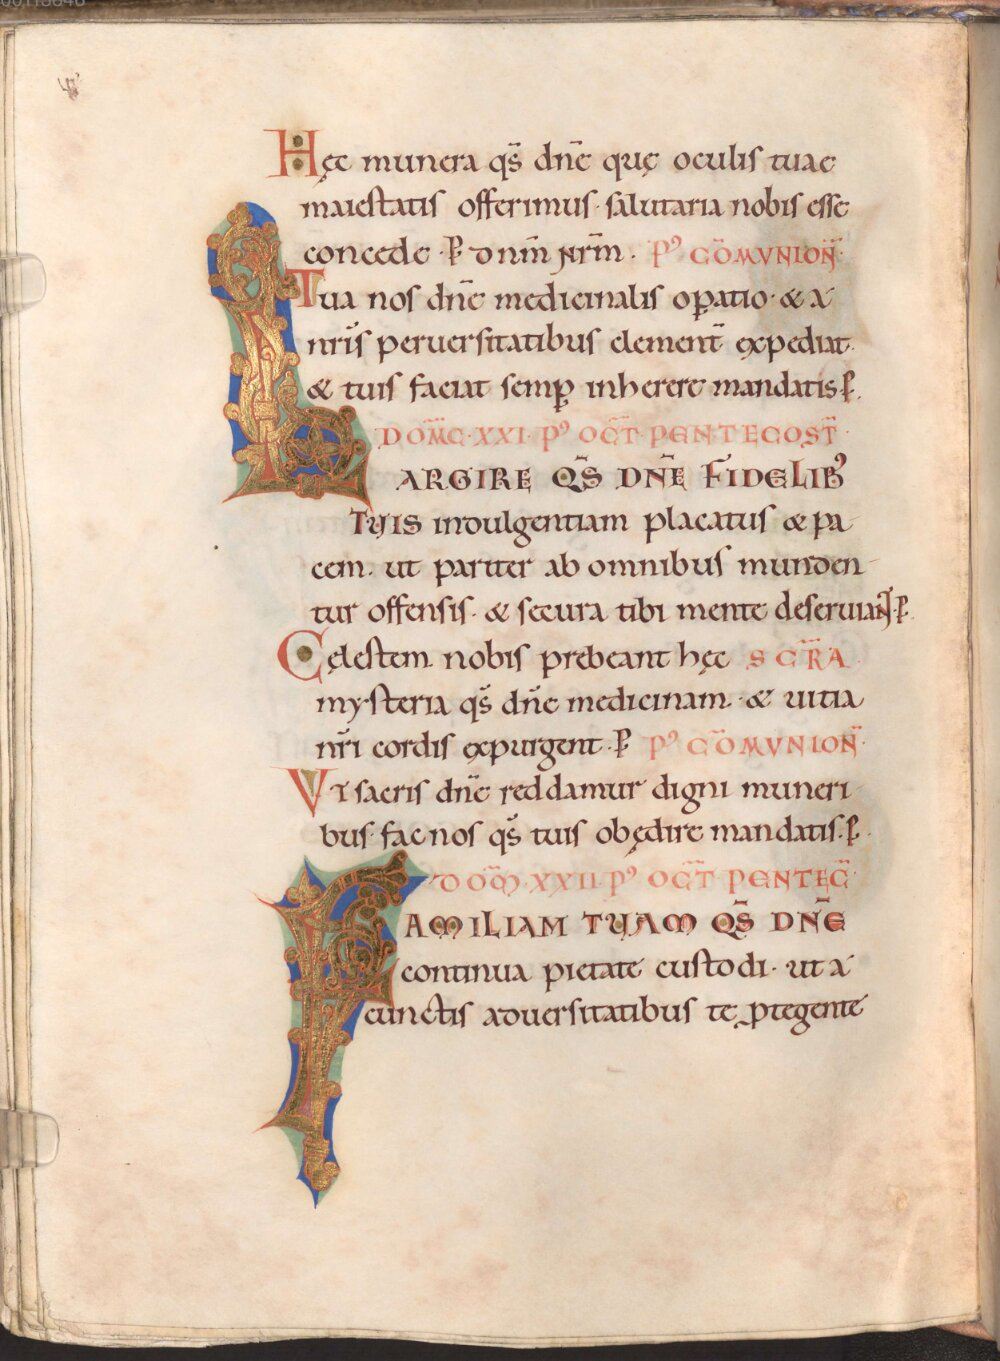 Hęc munera qs̄ dn̄e quę oculis tuae
maiestatis offerimus· salutaria nobis esse
concede · P̄ dnm̄ nr̄m · P' COM̄VNION̄·
Tua nos dn̄e medicinalis oꝑatio· & a
nr̄is peruersitatibus clement̄ expediat·
& tuis faciat semꝑ inherere mandatis P̄·
DOM̄C·XXI·P' OCT̄·PENTECOST̄·
LARGIRE QS̄ DN̄E FIDELIB'
TUIS indulgentiam placatus & pa
cem· ut pariter ab omnibus munden
tur offensis· & secura tibi mente deseruiaN̄T·P̄·
Cęlestem nobis prebeant hęc SCR̄A
mysteria qs̄ dn̄e medicinam· & uitia
nr̄i cordis expurgent·P̄ P' COM̄VNION̄·
VT sacris dn̄e reddamur digni muneri
bus· fac nos qs̄ tuis obędire mandatis·P̄·
DOM̄·XXII·P' OCT̄ PENTEC̄
FAMILIAM TUAM QS̄ DN̄E
continua pietate custodi· ut a
cunctis aduersitatibus te ꝓtegente